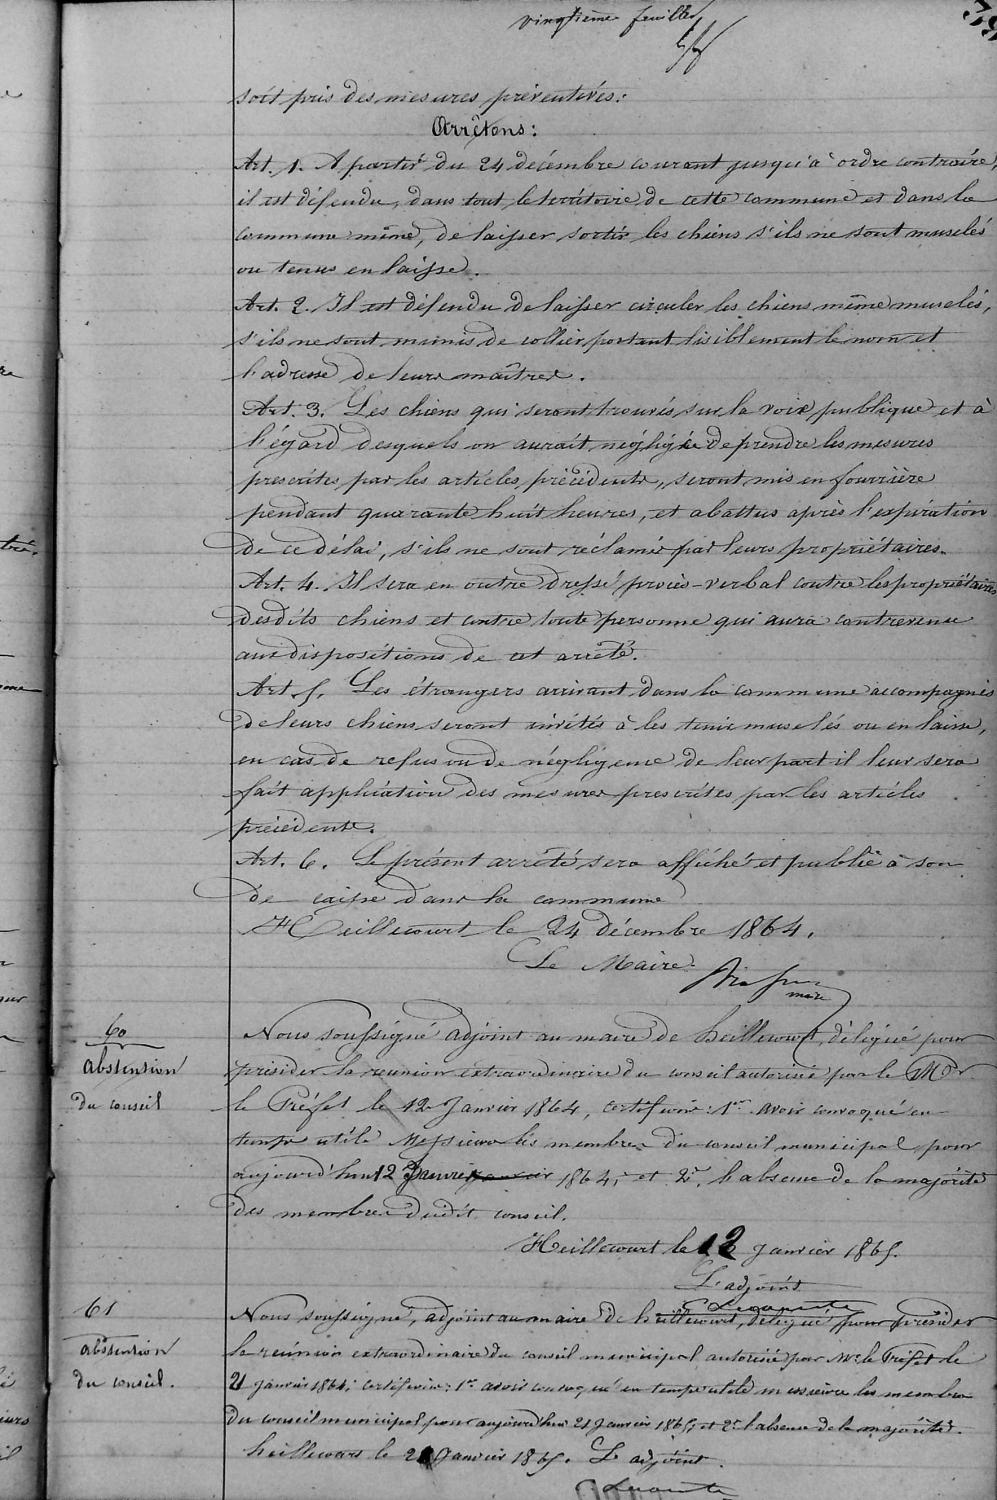 vingtième feuillet
soit pris des mesures préventives:
Arrêtons:
Art. 1. A partir du 24 décembre courant jusqu'à ordre contraire,
il est défendu, dans tout le territoire de cette commune et dans la
commune même, de laisser sortir les chiens s'ils ne sont muselés
ou tenus en laisse.
Art. 2. Il est défendu de laisser circuler les chiens même muselés,
s'ils ne sont munis de collier portant lisiblement le nom et
l'adresse de leurs maîtres.
Art. 3. Les chiens qui seront trouvés sur la voie publique et à
l'égard desquels on aurait négligée de prendre les mesures
prescrites par les articles précédents, seront mis en fourrière
pendant quarante huit heures, et abattus après l'expiration
de ce délai, s'ils ne sont réclamés par leurs propriétaires.
Art. 4. Il sera en outre dressé procès-verbal contre les propriétaires
desdits chiens et contre toute personne qui aura contrevenu
aux dispositions de cet arrêté.
Art. 5. Les étrangers arrivant dans la commune accompagnés
de leurs chiens seront invités à les tenir muselés ou en laisse,
en cas de refus ou de négligence de leur part il leur sera
fait application des mesures prescrites par les articles
précédents.
Art. 6. Le présent arrêté sera affiché et publié à son
de caisse dans la commune
Heillecourt le 24 décembre 1864.
Le Maire
maire
60
abstension
du conseil
Nous soussigné adjoint au maire de heillecourt, délégué pour
présider la réunion extraordinaire du conseil autorisée par le Mr
le Préfet le 12 Janvier 1864, certifions: 1° avoir convoqué en
temps utile Messieurs les membres du conseil municipal pour
aujourd'hui 12 Janvier 1864; et 2° l'absence de la majorité
des membres dudit conseil.
Heillecourt le 12 Janvier 1865.
L'adjoint
61
abstention
du conseil.
Nous soussigné, adjoint au maire de heillecourt, délégué pour présider
la réunion extraordinaire du conseil municipal autorisée par Mr le Préfet le
21 janvier 1864; certifions: 1° avoir convoqué en temps utile messieurs les membres
du conseil municipal pour aujourd'hui 21 Janvier 1865; et 2° l'absence de la majorité.
heillecourt le 21 Janvier 1865. L'adjoint.